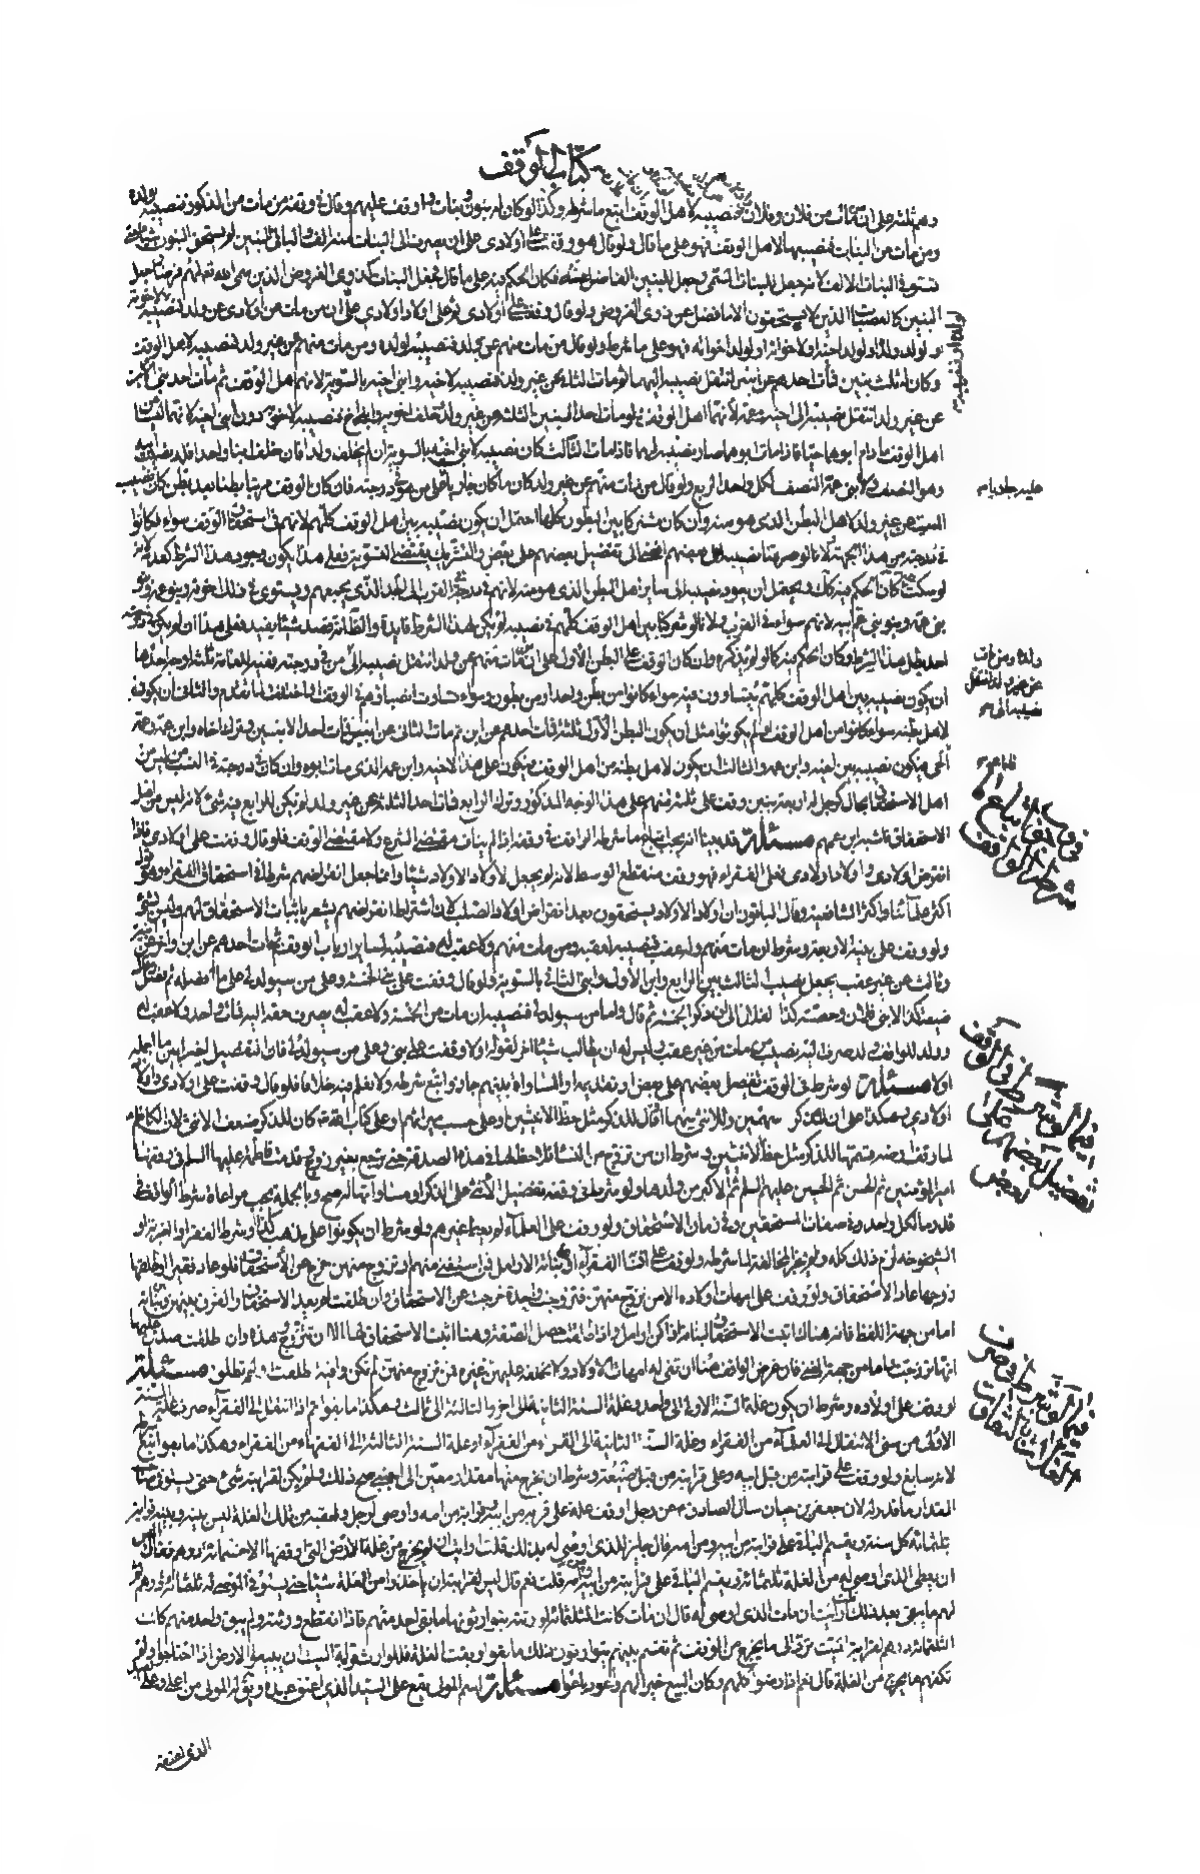 كتاب الوقف
وهم ثلثة على ان من مات من فلان وفلان فنصيبه لاهل الوقف اتبع ما شرطه وكذا لو كان له بنون وبنات و اوقف عليهم وقال في وقفه من مات من الذكور فنصيبه لولده
ومن مات من البنات فنصيبها لاهل الوقف فهو على ما قال ولو قال هو وقف على اولادي على ان يصرف الى البنات منه الف والباقي للبنين لم يستحق البنون شيئا حتى
تستوفي البنات الالف لانه جعل للبنات مسمى وجعل للبنين الفاضل عنه فكان الحكم فيه على ما قال فجعل البنات كذوي الفروض الذين سمى الله تعالى لهم فرضا وجعل
البنين كالعصبات الذين لا يستحقون الا ما فضل عن ذوي الفروض ولو قال وقفت على اولادي ثم على اولاد اولادي على ان من مات من اولادي عن ولد فنصيبه
او لولده ولد او لولد اخته او لاخوته او لولد اخواته فهو على ما شرط ولو قال من مات منهم عن ولد فنصيبه لولده ومن مات منهم عن غير ولد فنصيبه لاهل الوقف
وكان له ثلث بنين فمات احدهم عن ابنين انتقل نصيبه اليهما ثم مات الثاني عن غير ولد فنصيبه لاخيه وابني اخيه بالسوية لانهم اهل الوقف ثم مات احد بني
عن غير ولد انتقل نصيبه الى اخيه وعمه لانهما اهل الوقف ولو مات احد البنين الثلثة عن غير ولد وخلف اخويه وابني اخ فنصيبه لاخويه دون ابني اخيه لانهما ليسا من
اهل الوقف ما دام ابوهما حيا فاذا مات ابوهما صار نصيبه لهما فاذا مات الثالث كان نصيبه لابني اخيه بالسوية ان لم يخلف ولدا فان خلف ابنا واحدا فله نصيب ابيه
وهو النصف ولابني عمه النصف لكل واحد الربع ولو قال من مات منهم عن غير ولد كان ما كان جاريا على من هو في درجته فان كان الوقف مرتبا بطنا بعد بطن كان نصيب
الميت عن غير ولد لاهل البطن الذي هو منه وان كان مشتركا بين البطون كلها احتمل ان يكون نصيبه بين اهل الوقف كلهم لانهم في استحقاق الوقف سواء فكانوا
في درجته من هذه الجهة
لو سكت عنه كان الحكم فيه كذلك ويحتمل ان يعود نصيبه الى سائر اهل البطن الذي هو منه لانهم في درجته في القرب الى الجد الذي يجمعهم ويستوي في ذلك اخوته وبنو عمه
بني عم ابيه لانهم سواء في القرب ولانا لو شركنا بين اهل الوقف كلهم في نصيبه لم يكن لهذا الشرط فائدة والظاهر انه قصد شيئا يفيد فعلى هذا ان لم يكن في درجته
احد بطل هذا الشرط وكان الحكم فيه كما لو لم يذكره وان كان الوقف على البطن الاول على ان من مات منهم عن ولد انتقل نصيبه الى من في درجته ففيه ثلثة اوجه احدها
ان يكون نصيبه بين اهل الوقف كلهم يتساوون فيه سواء كانوا من بطن واحد او من بطون وسواء تساوت انصباؤهم في الوقف او اختلفت لما تقدم والثاني ان يكون
لاهل بطنه سواء كانوا من اهل الوقف او لم يكونوا مثل ان يكون البطن الاول ثلثة فمات احدهم عن ابن ثم مات الثاني عن ابنين فمات احد الابنين وترك اخاه وابن عمه وعمه
الحي فيكون نصيبه بين اخيه وابن عمه والثالث ان يكون لاهل بطنه من اهل الوقف فيكون على هذا لاخيه وابن عمه الذي مات ابوه وان كان في درجته في النسب من ليس من
اهل الاستحقاق بحال كرجل له اربعة بنين وقف على ثلثة منهم على هذا الوجه المذكور وترك الرابع فمات احد الثلثة عن غير ولد لم يكن للرابع فيه شيء لانه ليس من اهل
الاستحقاق فاشبه ابن عمهم مسئلة قد بينا انه يجب اتباع ما شرطه الواقف في وقفه اذا لم يناف مقتضى الشرع ولا مقتضى الوقف فلو قال وقفت على اولادي فاذا
انقرض اولادي واولاد اولادي فعلى الفقراء فهو وقف منقطع الوسط لانه لم يجعل لاولاد الاولاد شيئا وانما جعل انقراضهم شرطا في استحقاق الفقراء وهو قول
اكثر علمائنا واكثر الشافعية وقال الباقون ان اولاد الاولاد يستحقون بعد انقراض اولاد الصلب لان اشتراط انقراضهم يشعر باثبات الاستحقاق لهم وليس بشيء
ولو وقف على بنيه الاربعة وشرط ان من مات منهم وله عقب فنصيبه لعقبه ومن مات منهم ولا عقب له فنصيبه لسائر ارباب الوقف ثم مات احدهم عن ابن واخر عن ابنين
وثالث عن غير عقب يجعل نصيب الثالث بين الرابع وابن الاول وابني الثاني بالسوية ولو قال وقفت على بني الخمسة وعلى من سيولد لي على ما افصله ثم فصل وقال
ضيعة كذا لابني فلان وحصة كذا لفلان الى ان ذكر الخمسة ثم قال واما من سيولد لي فنصيبه ان مات من الخمسة ولا عقب له يصرف حقه اليه فمات واحد ولا عقب له
وولد للواقف ولد صرف اليه نصيب من مات من غير عقب وليس له ان يطالب شيئا اخر لقوله اولا وقفت على بني وعلى من سيولد لي فان التفصيل اخيرا بين ما اجمله
اولا مسئلة لو شرط في الوقف تفضيل بعضهم على بعض او تقديمه او المساواة بينهم جاز واتبع شرطه ولا نعلم فيه خلافا فلو قال وقفت على اولادي واولاد
اولادي وهكذا على ان للذكر سهمين وللانثى سهما او قال للذكر مثل حظ الانثيين او على حسب ميراثهم او على كتاب الله تعالى كان للذكر ضعف الانثى
لما وقف وقسمتها للذكر مثل حظ الانثيين وشرط ان من تزوج من النساء فلا حظ لها في هذه الصدقة حتى ترجع بغير زوج وقدمت فاطمة عليها السلم في وقفها
امير المؤمنين ثم الحسن ثم الحسين عليهم السلم ثم الاكبر من ولدها ولو شرط في وقفه تفضيل الانثى على الذكر او مساواتها له صح وبالجملة يجب مراعاة شرط الواقف في
قدر ما لكل واحد وفي صفات المستحقين وفي زمان الاستحقاق ولو وقف على العلماء لم يعط غيرهم ولو شرط ان يكونوا على مذهب كذا او بشرط الفقر او الغربة او
الشيخوخة لزم ذلك كله ولم يجز المخالفة لما شرطه ولو وقف على ابنائه الفقراء او على بناته الارامل فمن استغنى منهم او تزوج منهن خرج عن الاستحقاق فلو عاد فقيرا او طلقها
زوجها عاد الاستحقاق ولو وقف على امهات اولاده الا من تزوج منهن فتزوجت واحدة خرجت عن الاستحقاق وان طلقت لم يعد الاستحقاق والفرق بينهن وبين بناته
اما من جهة اللفظ فانه هناك اثبت الاستحقاق لبناته اذا كن ارامل واذا طلقت حصل الصفة وهنا اثبت الاستحقاق لها الا ان تتزوج وهذه وان طلقت صدق عليها
انها تزوجت واما من جهة المعنى فان غرض الواقف هنا ان تفي له امهات الاولاد ولا تخلفه عليهن غيره فمن تزوج منهن لم تكن وافية طلقت او لم تطلق مسئلة
لو وقف على اولاده وشرط ان يكون غلة السنة الاولى الى واحد وغلة السنة الثانية الى اخر والثالثة الى ثالث وهكذا ما بقوا ثم اذا انتقل الى الفقراء صرف غلة السنة
الاولى من سني الانتقال الى العلماء من الفقراء وغلة السنة الثانية الى القراء من الفقراء وغلة السنة الثالثة الى الفقهاء من الفقراء وهكذا ما بقوا اتبع شرطه
لانه سايغ ولو وقف على قرابته من قبل ابيه وعلى قرابته من قبل امه ضيعة وشرط ان يخرج منها مقدار معين الى اجنبي صح ذلك ولم يكن لقرابته شيء حتى يستوفي
المقدار ما قدر له لان جعفر بن حيان سال الصادق ع عن رجل اوقف غلة على قرابته من ابيه وقرابته من امه واوصى لرجل ولعقبه من تلك الغلة ليس بينه وبينه قرابة
بثلثمائة كل سنة ويقسم الباقي على قرابته من ابيه ومن امه فقال جائز للذي اوصي له بذلك قلت ارايت ان لم يخرج من غلة الارض التي وقفها الا خمسمائة درهم فقال اليس
ان يعطى الذي اوصي له من الغلة ثلثمائة ويقسم الباقي على قرابته من ابيه وامه قلت نعم قال ليس لقرابته ان ياخذوا من الغلة شيئا حتى يستوفي الموصى له ثلثمائة درهم ثم
لهم ما يبقى بعد ذلك قلت ارايت ان مات الذي اوصي له قال ان مات كانت الثلثمائة لورثته يتوارثونها ما بقي احد منهم فاذا انقطع ورثته ولم يبق واحد منهم كانت
الثلثمائة درهم لقرابة الميت ترد الى ما يخرج من الوقف ثم تقسم بينهم يتوارثون ذلك ما بقوا وبقيت الغلة قلت فللورثة قرابة الميت ان يبيعوا الارض اذا احتاجوا ولم
تكفهم ما يخرج من الغلة قال نعم اذا رضوا كلهم وكان البيع خيرا لهم باعوا مسئلة اسم المولى يقع على السيد الذي اعتق عبده ويقال له المولى من اعلى وعلى العبد
الذي اعتقه
ولده ومن مات
عن غير ولد انتقل
نصيبه الى
في وجوب اتباع ما
شرطه الواقف
فيما لو شرط في الوقف
تفضيل بعضهم على
بعض
فيما لو شرط صرف